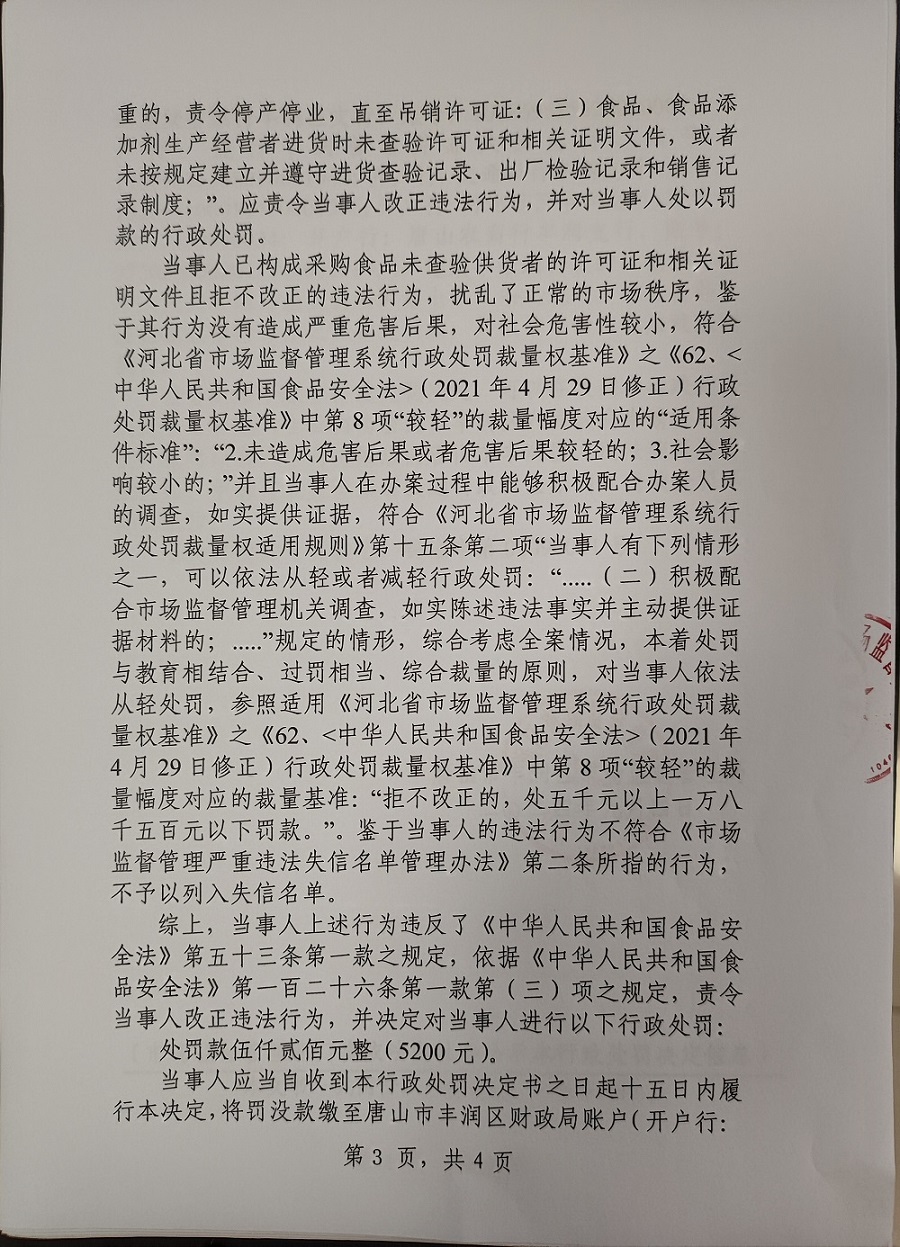 重的，责令停产停业，直至吊销许可证：（三）食品、食品添
加剂生产经营者进货时未查验许可证和相关证明文件，或者
未按规定建立并遵守进货查验记录、出厂检验记录和销售记
录制度；”。应责令当事人改正违法行为，并对当事人处以罚
款的行政处罚。
当事人已构成采购食品未查验供货者的许可证和相关证
明文件且拒不改正的违法行为，扰乱了正常的市场秩序，鉴
于其行为没有造成严重危害后果，对社会危害性较小，符合
《河北省市场监督管理系统行政处罚裁量权基准》之《62、<
中华人民共和国食品安全法>（2021 年 4 月 29 日修正）行政
处罚裁量权基准》中第 8 项“较轻”的裁量幅度对应的“适用条
件标准”：“2.未造成危害后果或者危害后果较轻的；3.社会影
响较小的；”并且当事人在办案过程中能够积极配合办案人员
的调查，如实提供证据，符合《河北省市场监督管理系统行
政处罚裁量权适用规则》第十五条第二项“当事人有下列情形
之一，可以依法从轻或者减轻行政处罚：“.....（二）积极配
合市场监督管理机关调查，如实陈述违法事实并主动提供证
据材料的；.....”规定的情形，综合考虑全案情况，本着处罚
与教育相结合、过罚相当、综合裁量的原则，对当事人依法
从轻处罚，参照适用《河北省市场监督管理系统行政处罚裁
量权基准》之《62、<中华人民共和国食品安全法>（2021 年
4 月 29 日修正）行政处罚裁量权基准》中第 8 项“较轻”的裁
量幅度对应的裁量基准：“拒不改正的，处五千元以上一万八
千五百元以下罚款。”。鉴于当事人的违法行为不符合《市场
监督管理严重违法失信名单管理办法》第二条所指的行为，
不予以列入失信名单。
综上，当事人上述行为违反了《中华人民共和国食品安
全法》第五十三条第一款之规定，依据《中华人民共和国食
品安全法》第一百二十六条第一款第（三）项之规定，责令
当事人改正违法行为，并决定对当事人进行以下行政处罚：
处罚款伍仟贰佰元整（5200 元）。
当事人应当自收到本行政处罚决定书之日起十五日内履
行本决定，将罚没款缴至唐山市丰润区财政局账户（开户行：
第 3 页，共 4 页
监